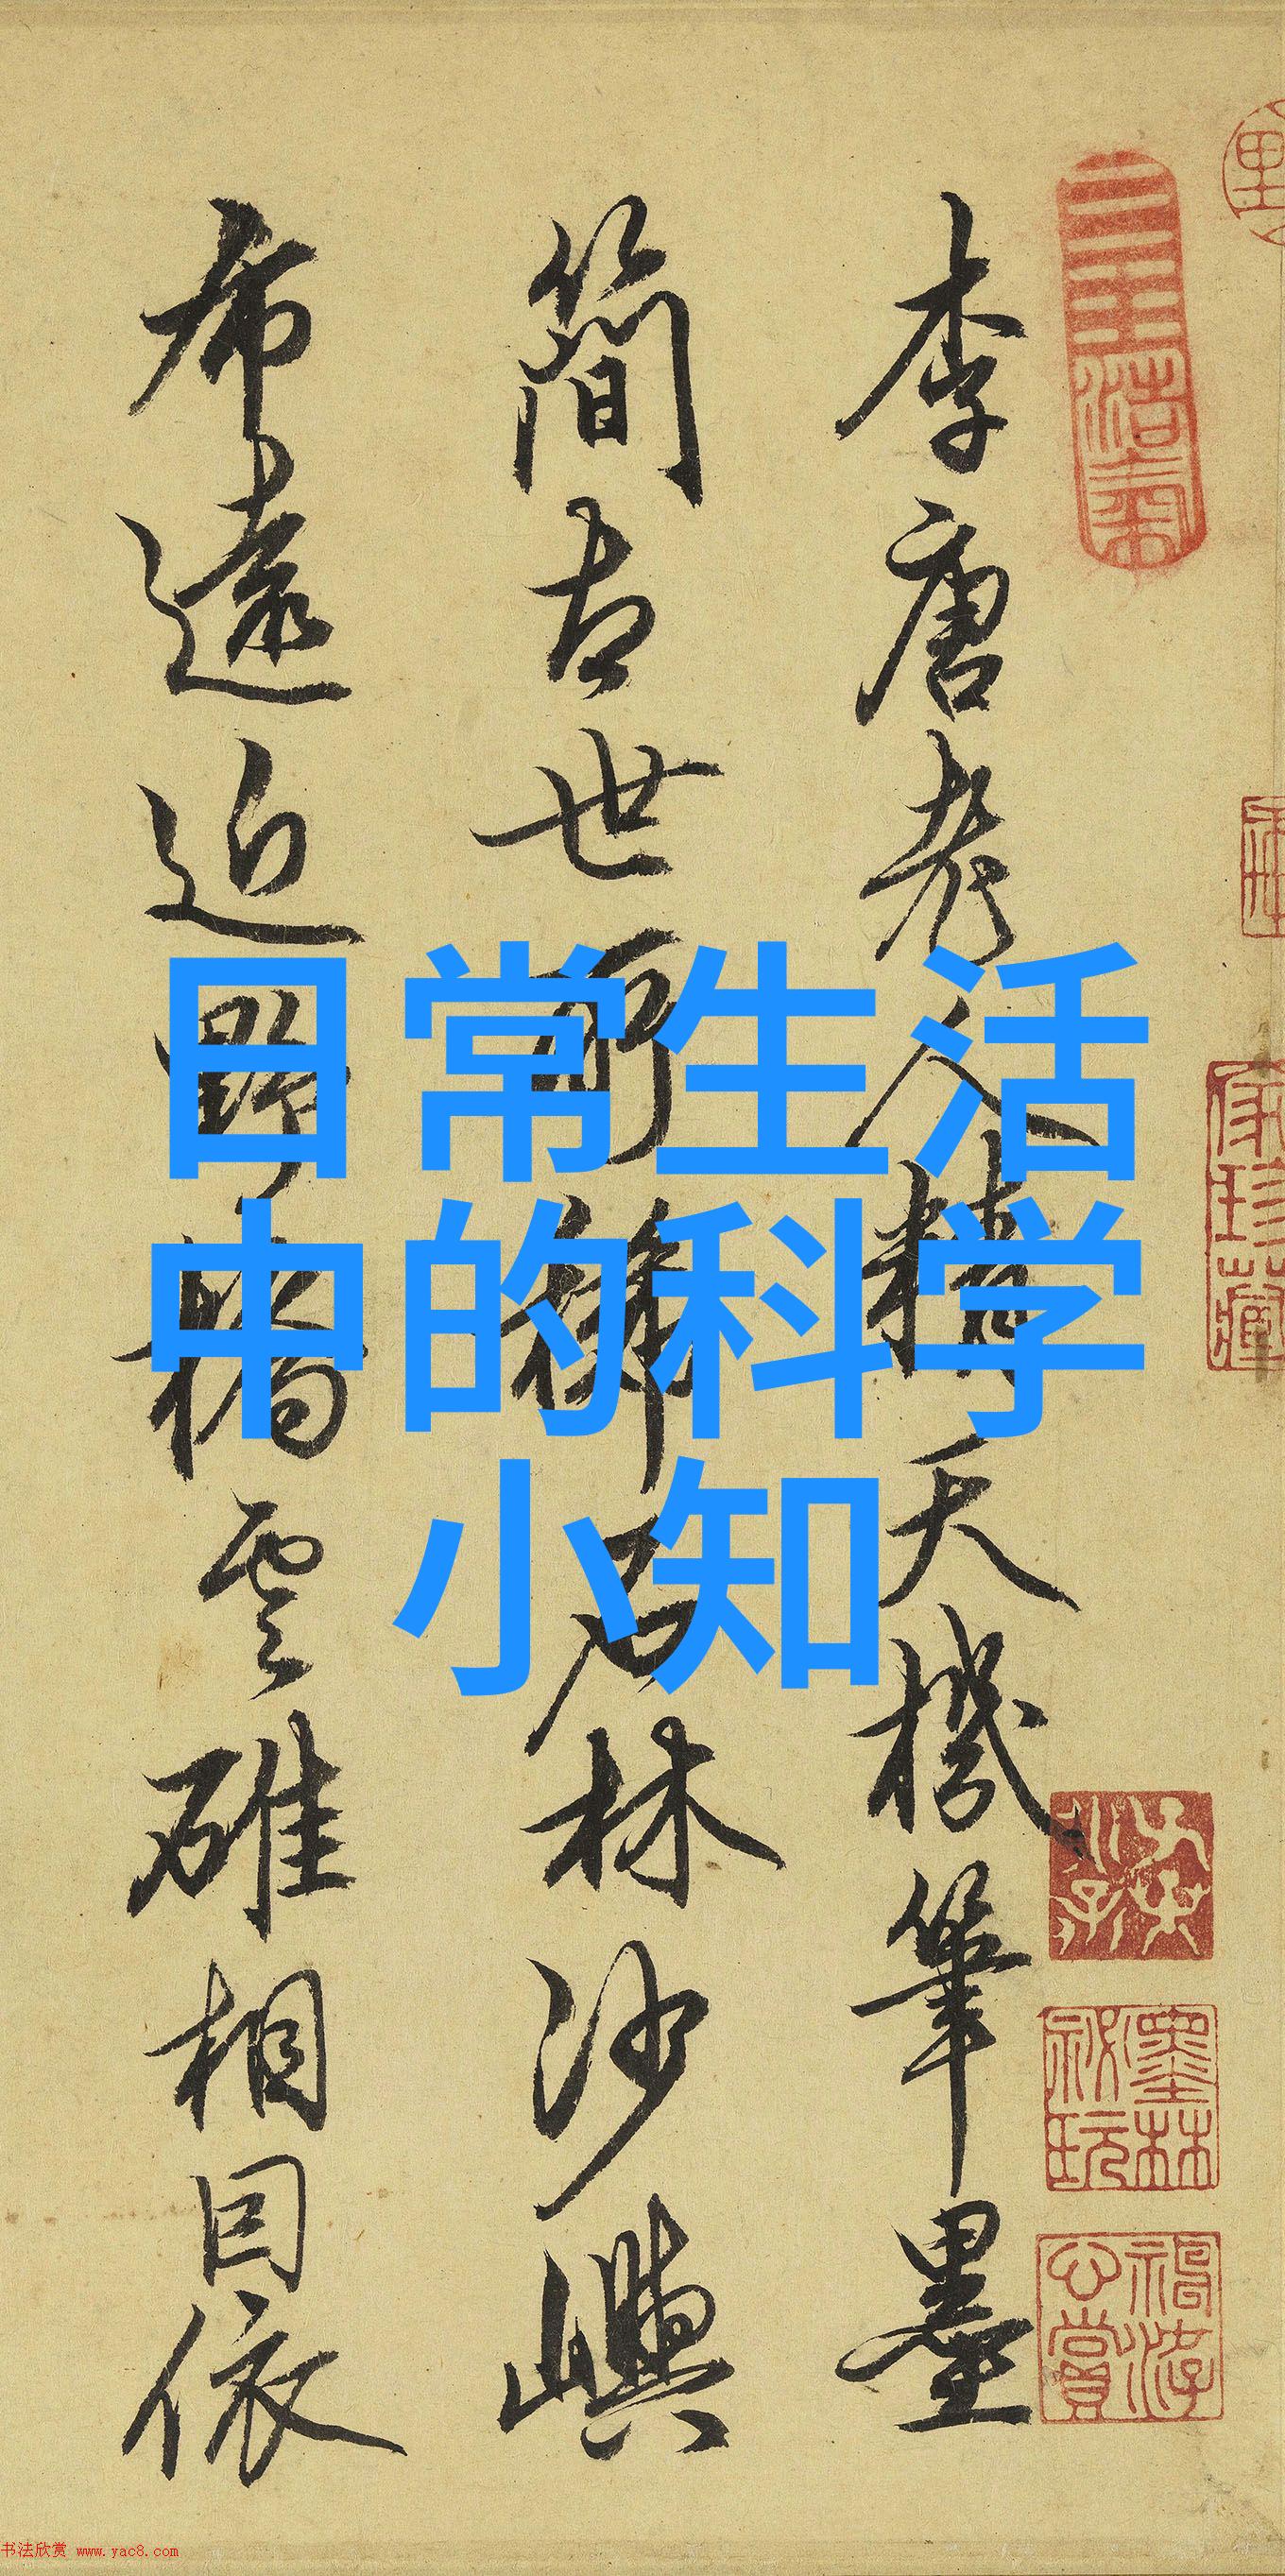 李唐老人精天機筆墨
簡古世所稱石林沙嶼
布遠近野橋雲碓相因依
日常生活
中的科学
小知
书法欣赏 www.yac8.com